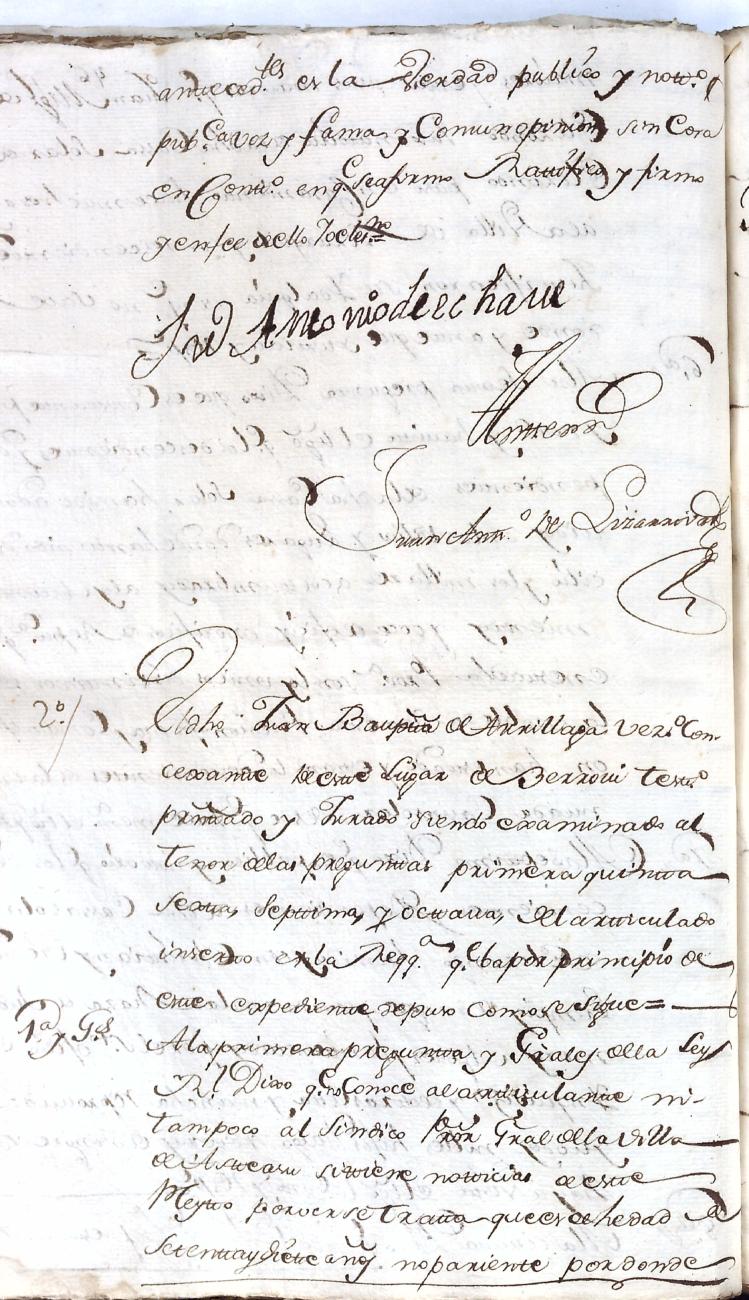 anteced.tes es la Verdad publico y notto.
pub.ca voz y fama y Comun opinion sin Cosa
en Contt.o en q.e se afirmo Rattifico y firmo
y en fee de ello Yo el es.no=
Jud Antonio de echave
Antte mi
Juan Antt.o de Lizarrivar
2º./
El dho Juan Bauptta de Arrillaga vez.o Con-
cexante de este Lugar de Berrovi testt.o
presentado y Jurado siendo examinado al
tenor de las preguntas primera quintta
sexta, septtima, y octtava, del artticulado
inserto en la Reqq.a q.e ba por principio de
este expediente depuso como se sigue=
1ª y G.s
A la primera pregunta y Grâles de la Ley
R.l Dixo q.e no Conoce al artticulante ni-
tampoco al sindico Pror Grâl de la villa
de Asteasu si tiene notticias de este
Pleytto por verse Tratta que es de hedad de
settenta y siete años no pariente por donde